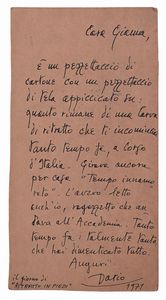 Cara Gianna,
È un pezzettaccio di
cartone con un pezzettaccio
di tela appiccicato su:
quanto rimane di una larva
di ritratto che ti incominciai
tanto tempo fa, a corso
d'Italia. Girava ancora
per casa "Tempo innamo
rato". L'avevo letto
anch'io, ragazzetto che an
dava all'Accademia. Tanto
tempo fa: talmente tanto
che hai dimenticato tutto.
Auguri
Dario
1971
il giorno di